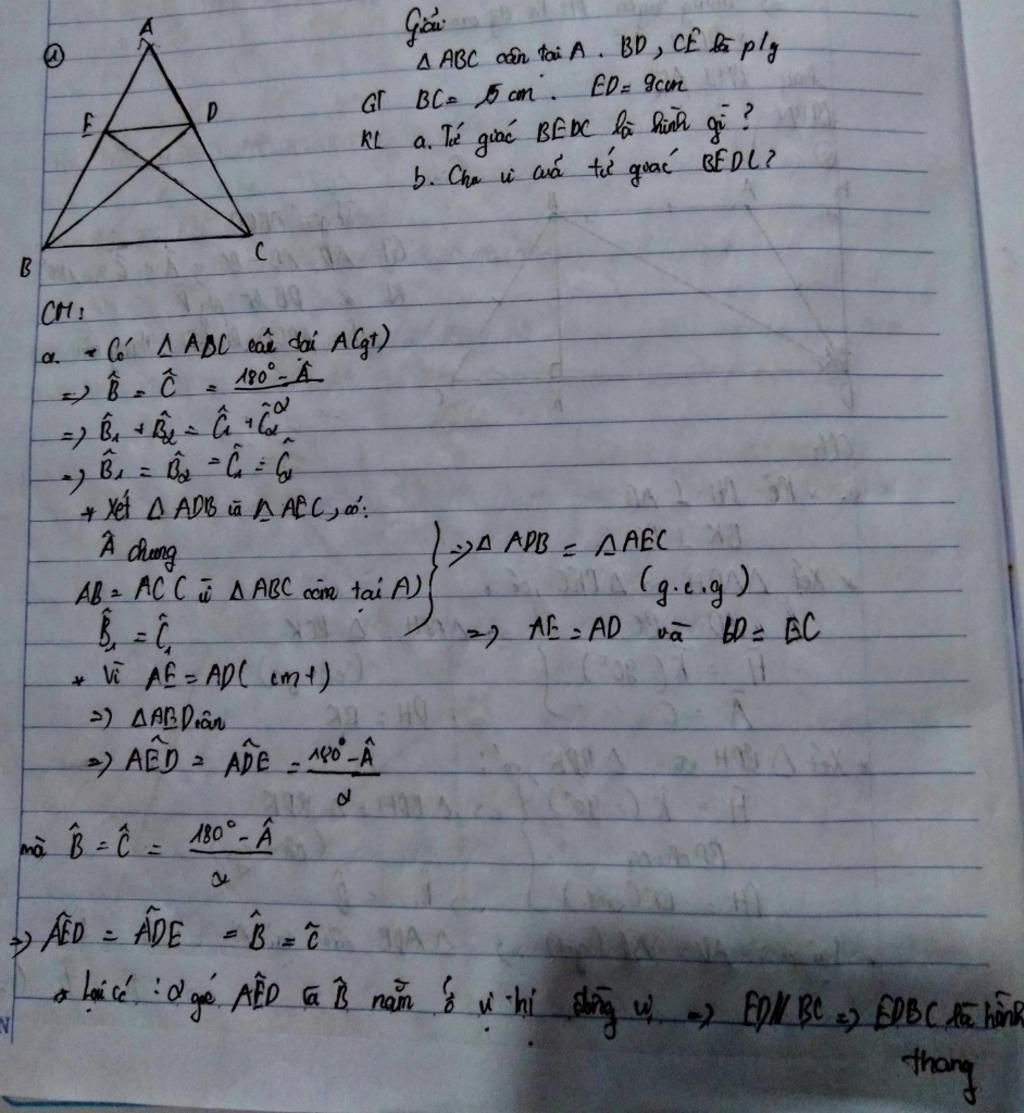 Giải
①
A
△ ABC cân tại A . BD, CE là p/g
GT BC= 15 cm . ED= 9cm
E
D
KL a. Tứ giác BEDC là hình gì ?
b. Chu vi của tứ giác BEDC?
B
C
CM:
a. * Có △ ABC cân tại A(gt)
=> B̂ = Ĉ = (180° - Â)/2
=> B̂₁ + B̂₂ = Ĉ₁ + Ĉ₂
=> B̂₁ = B̂₂ = Ĉ₁ = Ĉ₂
* Xét △ ADB và △ AEC, có:
Â chung
AB = AC ( vì △ ABC cân tại A)
B̂₁ = Ĉ₁
=> △ ADB = △AEC
(g.c.g)
=> AE = AD và BD = EC
* Vì AE = AD( cmt)
=> △AED cân
=> AÊD = ADE = (180° - Â)/2
mà B̂ = Ĉ = (180° - Â)/2
=> AÊD = ADE = B̂ = Ĉ
* Lại có : 2 góc AÊD và B̂ nằm ở vị trí đồng vị => ED // BC => EDBC là hình
thang